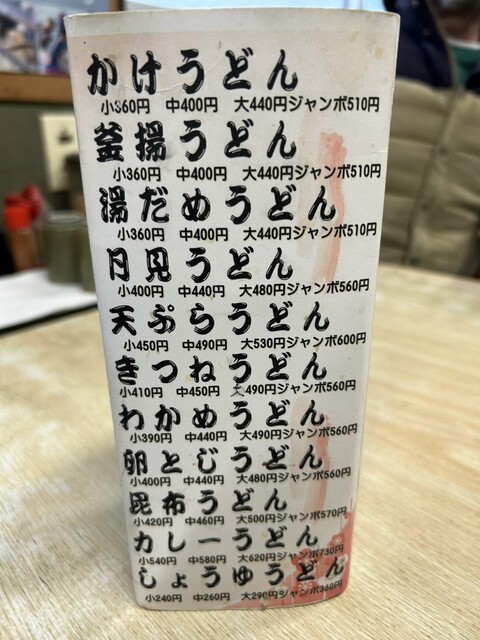 かけうどん
小360円 中400円 大440円ジャンボ510円
釜揚うどん
小360円 中400円 大440円ジャンボ510円
湯だめうどん
小360円 中400円 大440円ジャンボ510円
月見うどん
小400円 中440円 大480円ジャンボ560円
天ぷらうどん
小450円 中490円 大530円ジャンボ600円
きつねうどん
小410円 中450円 大490円ジャンボ560円
わかめうどん
小390円 中440円 大490円ジャンボ560円
卵とじうどん
小400円 中440円 大480円ジャンボ560円
昆布うどん
小420円 中460円 大500円ジャンボ570円
カレーうどん
小540円 中580円 大620円ジャンボ730円
しょうゆうどん
小240円 中260円 大290円ジャンボ360円